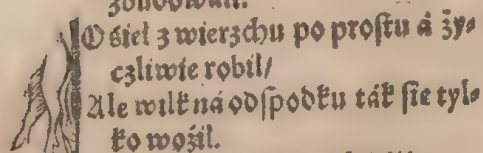 zbudowáli.
Osieł z wierzchu po prostu á ży⸗
cżliwie robił/
Ale wilk ná odspodku ták sie tyl⸗
ko woźił.